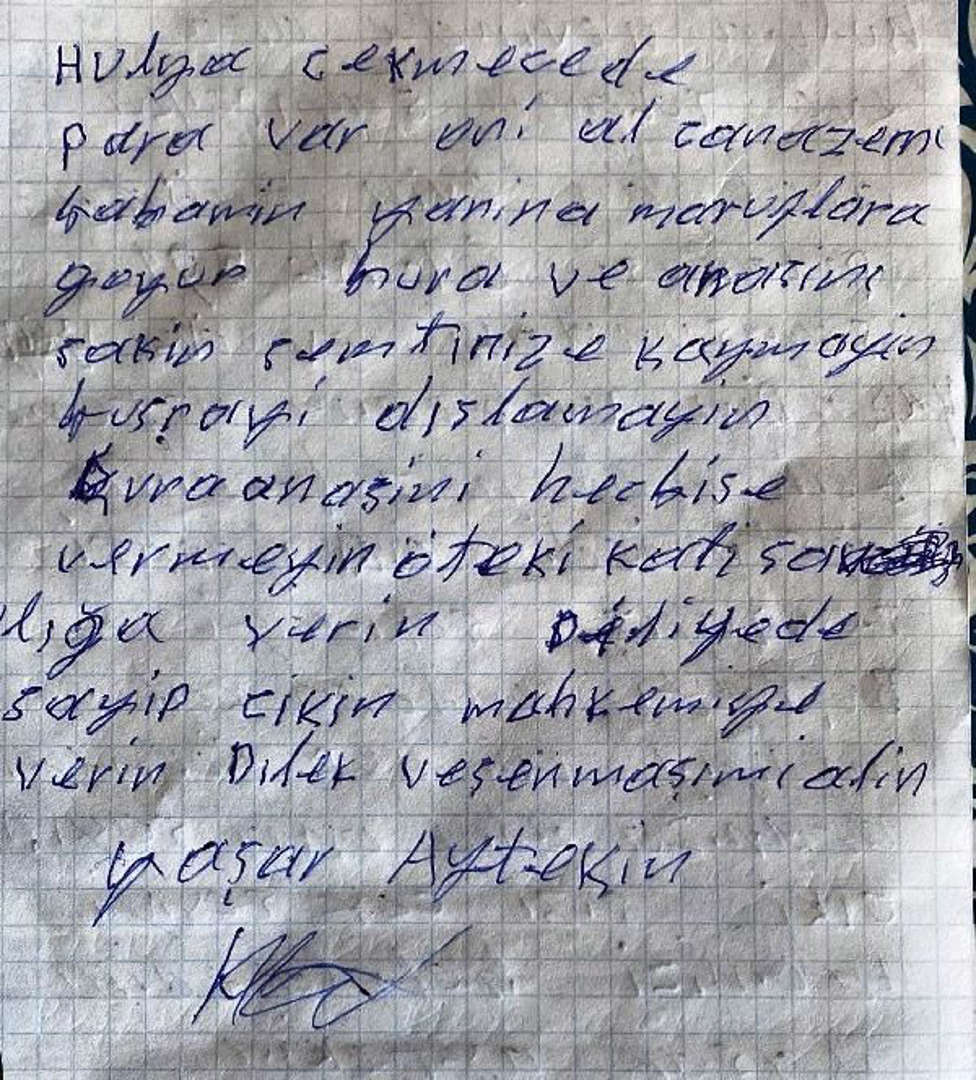 Hulya çekmecede
para var oni al canazemi
babamin yanina maruflara
goyun bura ve anasini
sakin semtinize koymayin
kuşrayi dışlamayin
kura anaşini hecbise
vermeyin öteki kati sa
lığa verin Deliyede
sayip cikin mahkemiye
verin Dilek veşenmaşimi alin
yaşar Aytekin